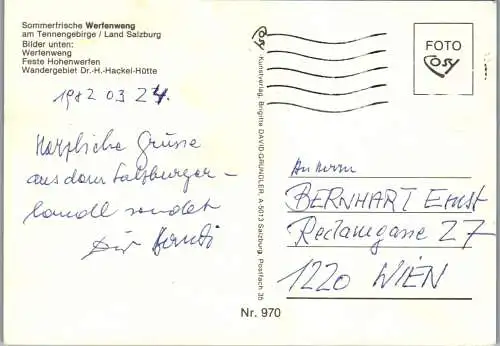 Sommerfrische Werfenweng
am Tennengebirge / Land Salzburg
Bilder unten:
Werfenweng
Feste Hohenwerfen
Wandergebiet Dr.-H.-Hackel-Hütte
1982 03 24.
Herzliche Grüsse
aus dem Salzburger-
landl sendet
Dir
Kunstverlag, Brigitte DAVID-GRÜNDLER, A 5013 Salzburg, Postfach 35
FOTO
Cosy
An Herrn
BERNHART Ernst
Reclamgasse 27
1220 WIEN
Nr. 970